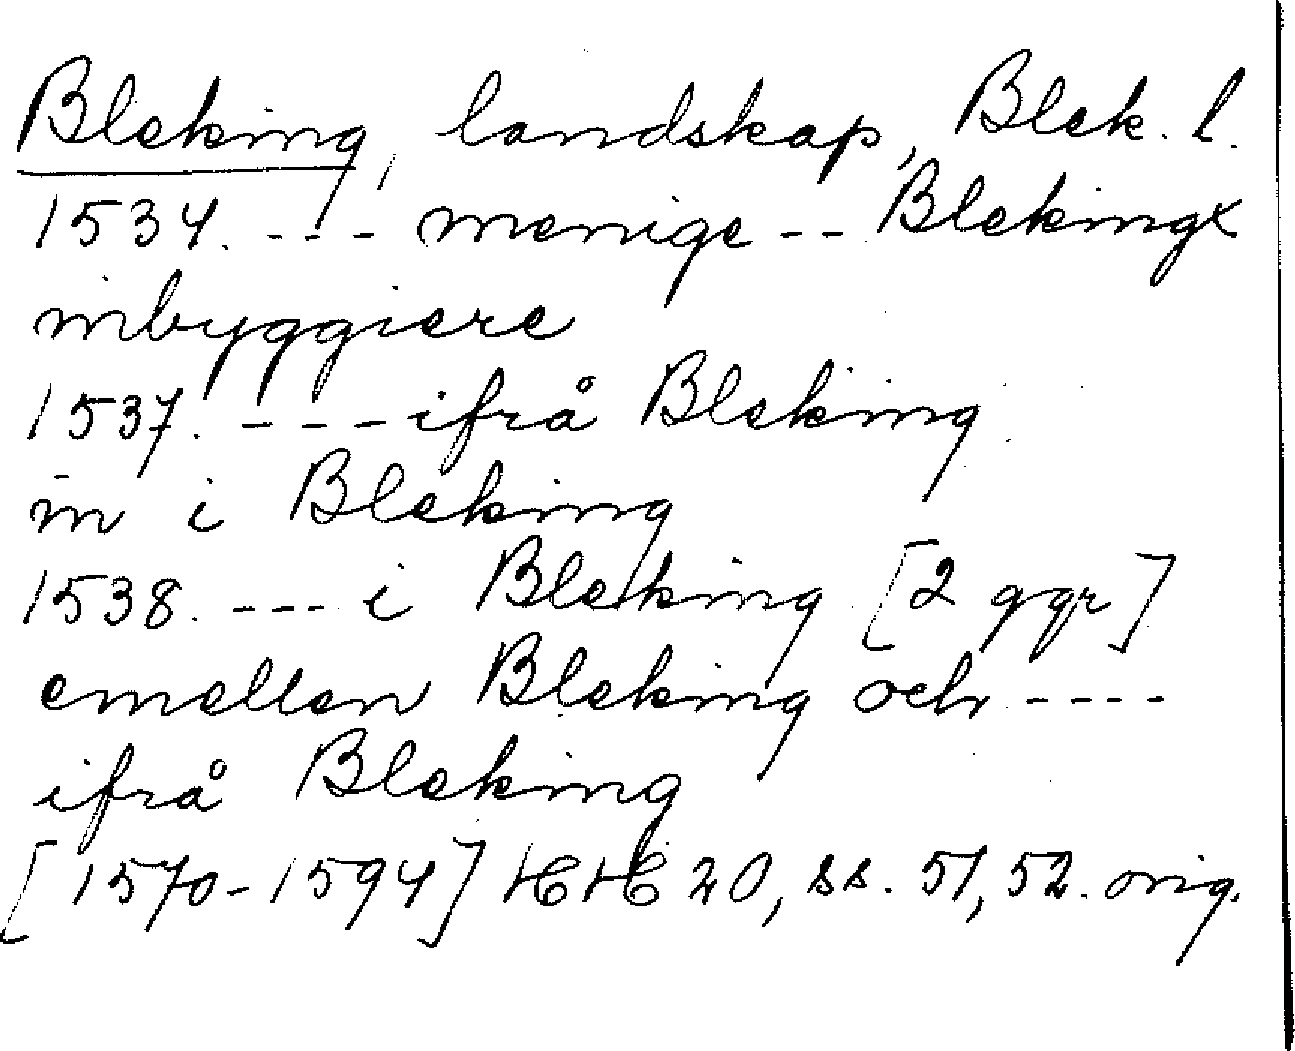 Bleking, landskap, Blek. l.
1534. --- menige -- Blekingx
inbyggiere
1537. --- ifrå Bleking
in i Bleking
1538. --- i Bleking [2 ggr]
emellan Bleking och ----
ifrå Bleking
[1570-1594] HH 20, ss. 51, 52. orig.